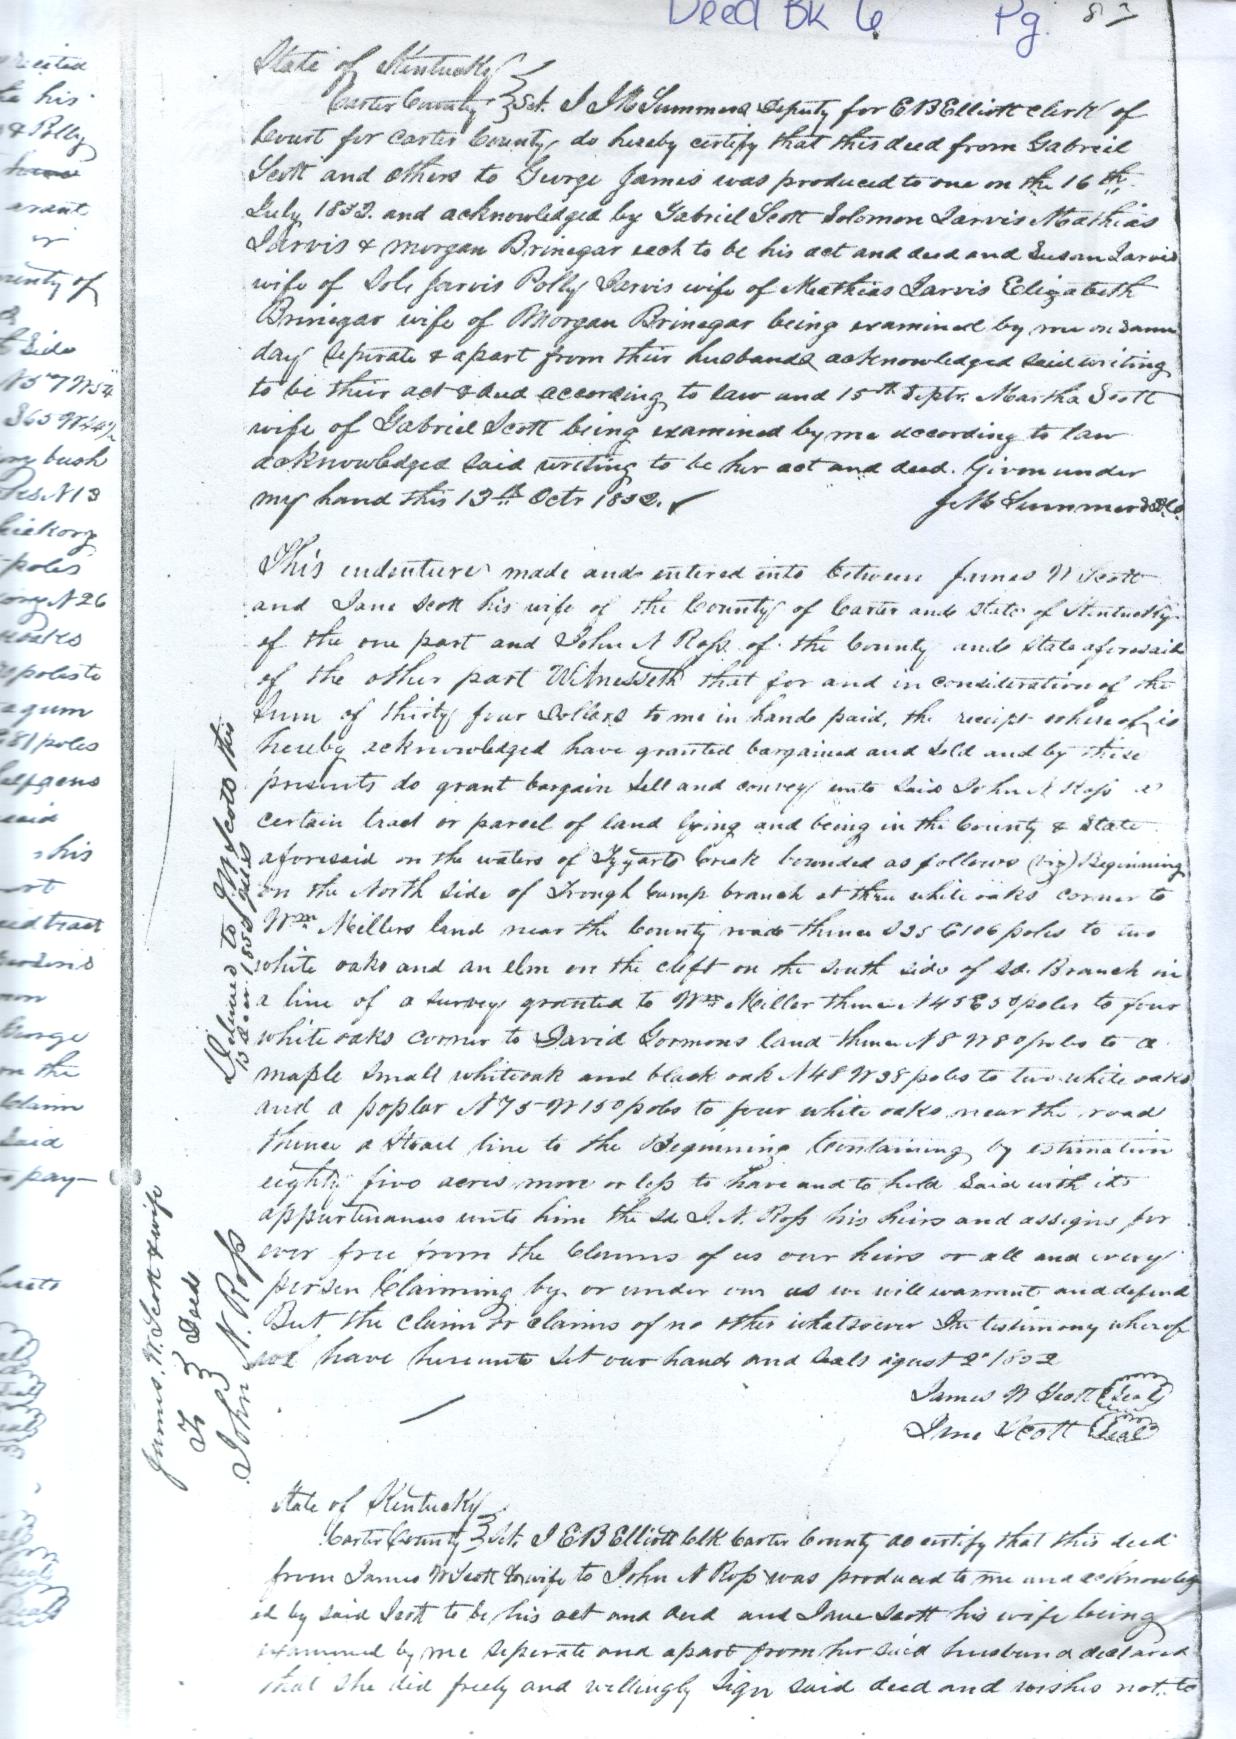 Deed Bk 6 Pg. 8
State of Kentucky
Carter County } Sct. I J M Summers Deputy for E B Elliott clerk of
Court for Carter County do hereby certify that this deed from Gabriel
Scott and others to George James was produced to me on the 16th
July 1852. and acknowledged by Gabriel Scott Solomon Jarvis Mathias
Jarvis & Morgan Brinegar each to be his act and deed and Susan Jarvis
wife of Sol. Jarvis Polly Jarvis wife of Mathias Jarvis Elizabeth
Brinegar wife of Morgan Brinegar being examined by me on same
day seperate & apart from their husbands acknowledged said writing
to be their act & deed according to law and 15th Septr. Martha Scott
wife of Gabriel Scott being examined by me according to law
acknowledged said writing to be her act and deed. Given under
my hand this 13th Octr 1852.
J M Summers D.C.
This indenture made and entered into between James W Scott
and Jane Scott his wife of the County of Carter and State of Kentucky
of the one part and John N Ross of the County and State aforesaid
of the other part Witnesseth that for and in consideration of the
Sum of thirty four Dollars to me in hand paid, the receipt whereof is
hereby acknowledged have granted bargained and sold and by these
presents do grant bargain sell and convey unto said John N Ross a
certain tract or parcel of land lying and being in the County & State
aforesaid on the waters of Tygarts Creek bounded as follows (viz) Beginning
on the North side of Trough Camp branch at three white oaks corner to
Wm Millers land near the County road thence S35 E106 poles to two
white oaks and an elm on the cleft on the south side of sd. Branch in
a line of a survey granted to Wm Miller thence N45 E58 poles to four
white oaks corner to David Gormons land thence N8 W80 poles to a
maple small whiteoak and black oak N48 W38 poles to two white oaks
and a poplar N75 W150 poles to four white oaks near the road
thence a Strait line to the Beginning Containing by estimation
eighty five acres more or less to have and to hold said with its
appurtenances unto him the sd. J. N. Ross his heirs and assigns for
ever free from the Claims of us our heirs or all and every
person Claiming by or under our us we will warrant and defend
But the claim or claims of no other whatsoever In testimony whereof
we have hereunto set our hands and seals agust 2d 1852
James W Scott Seal
Jane Scott Seal
State of Kentucky
Carter County } Sct. I E B Elliott Clk Carter County do certify that this deed
from James W Scott & wife to John N Ross was produced to me and acknowledg
ed by said Scott to be his act and deed and Jane Scott his wife being
examined by me seperate and apart from her said husband declared
that she did freely and willingly sign said deed and wishes not to
James. W. Scott & wife
To } Deed
John N. Ross
Delivered to J W Scott this
& Polly
arant
unty of
Side
N57 W54
bush
N13
hickory
poles
N26
poles to
a gum
81 poles
said
his
tract
George
on the
Claim
said
pay